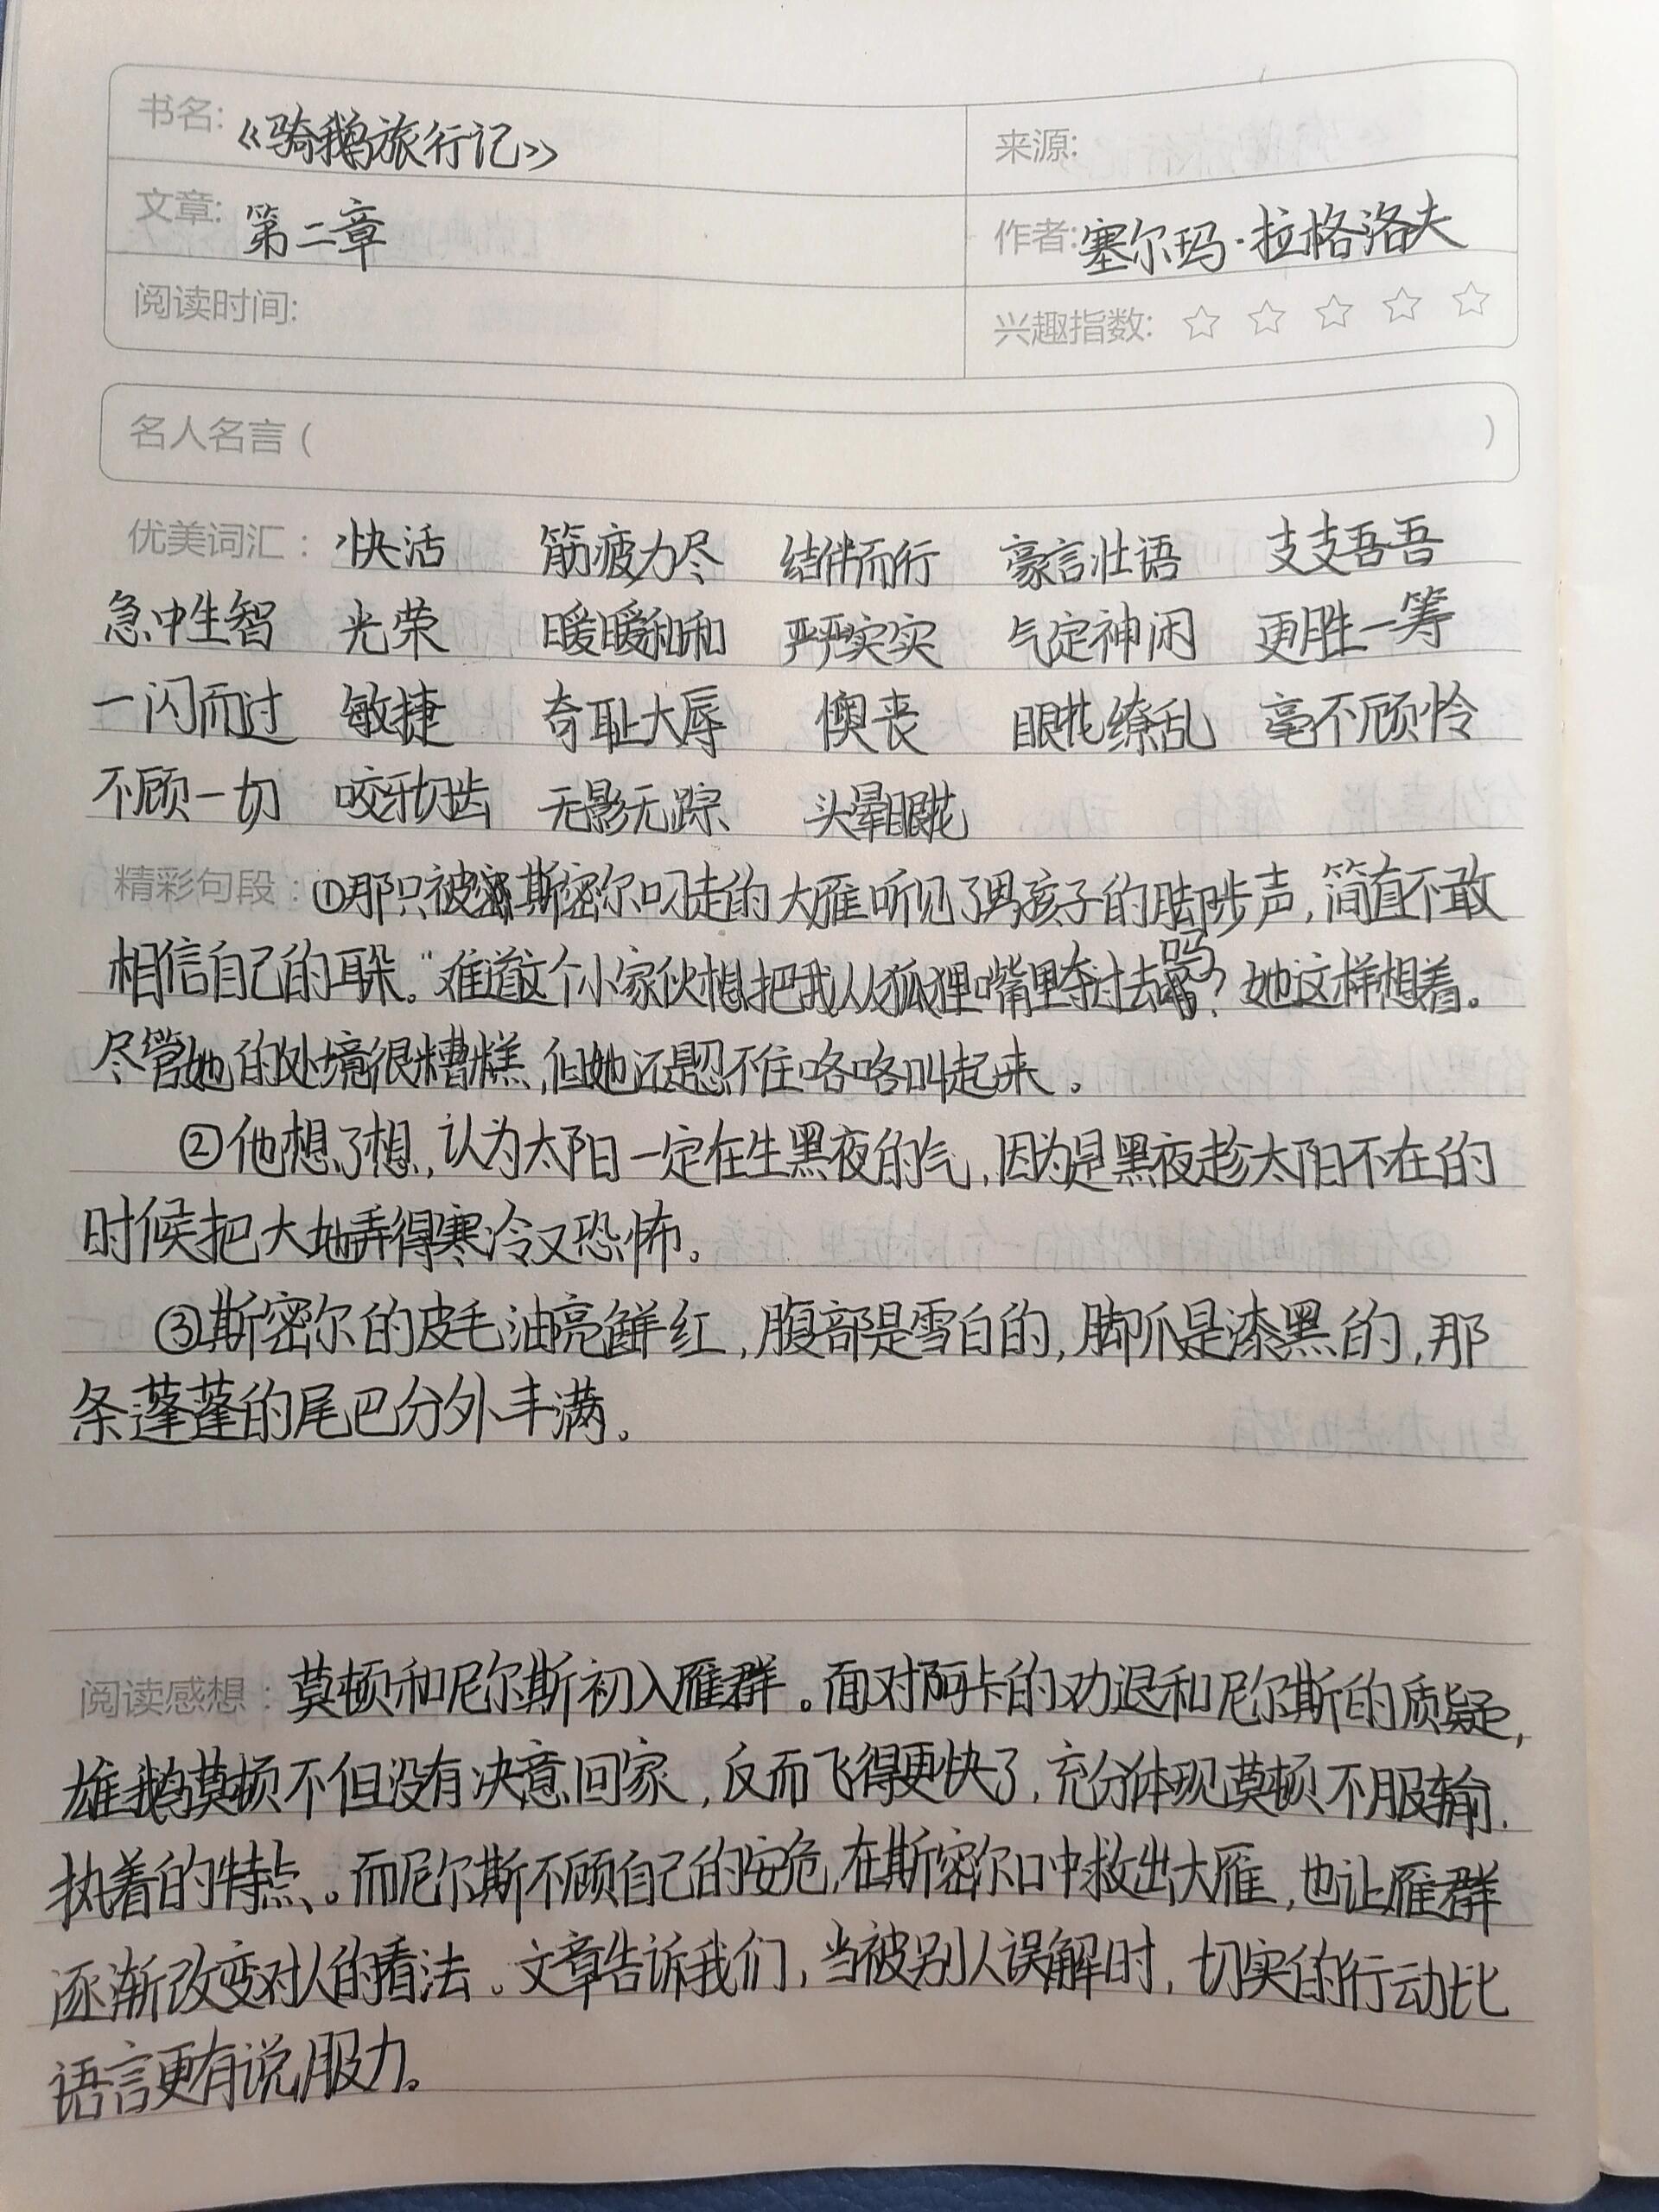 书名: 《骑鹅旅行记》
来源:
文章: 第二章
作者: 塞尔玛·拉格洛夫
阅读时间:
兴趣指数: ☆ ☆ ☆ ☆ ☆
名人名言 ( )
优美词汇: 快活 筋疲力尽 结伴而行 豪言壮语 支支吾吾
急中生智 光荣 暖暖和和 严严实实 气定神闲 更胜一筹
一闪而过 敏捷 奇耻大辱 懊丧 眼花缭乱 毫不顾怜
不顾一切 咬牙切齿 无影无踪 头晕眼花
精彩句段: ①那只被斯密尔叼走的大雁听见了男孩子的脚步声,简直不敢
相信自己的耳朵。“难道这个小家伙想把我从狐狸嘴里夺过去吗?她这样想着。
尽管她的处境很糟糕,但她还是忍不住咯咯叫起来。
②他想了想,认为太阳一定在生黑夜的气,因为是黑夜趁太阳不在的
时候把大地弄得寒冷又恐怖。
③斯密尔的皮毛油亮鲜红,腹部是雪白的,脚爪是漆黑的,那
条蓬蓬的尾巴分外丰满。
阅读感想: 莫顿和尼尔斯初入雁群。面对阿卡的劝退和尼尔斯的质疑,
雄鹅莫顿不但没有决意回家,反而飞得更快了,充分体现莫顿不服输、
执着的特点。而尼尔斯不顾自己的安危,在斯密尔口中救出大雁,也让雁群
逐渐改变对人的看法。文章告诉我们,当被别人误解时,切实的行动比
语言更有说服力。